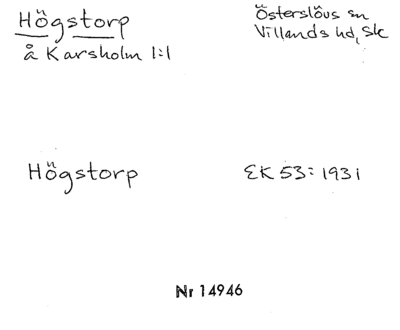 Högstorp
å Karsholm 1:1
Österslövs sn
Villands hd, Sk
Högstorp
EK 53: 1931
Nr 14946